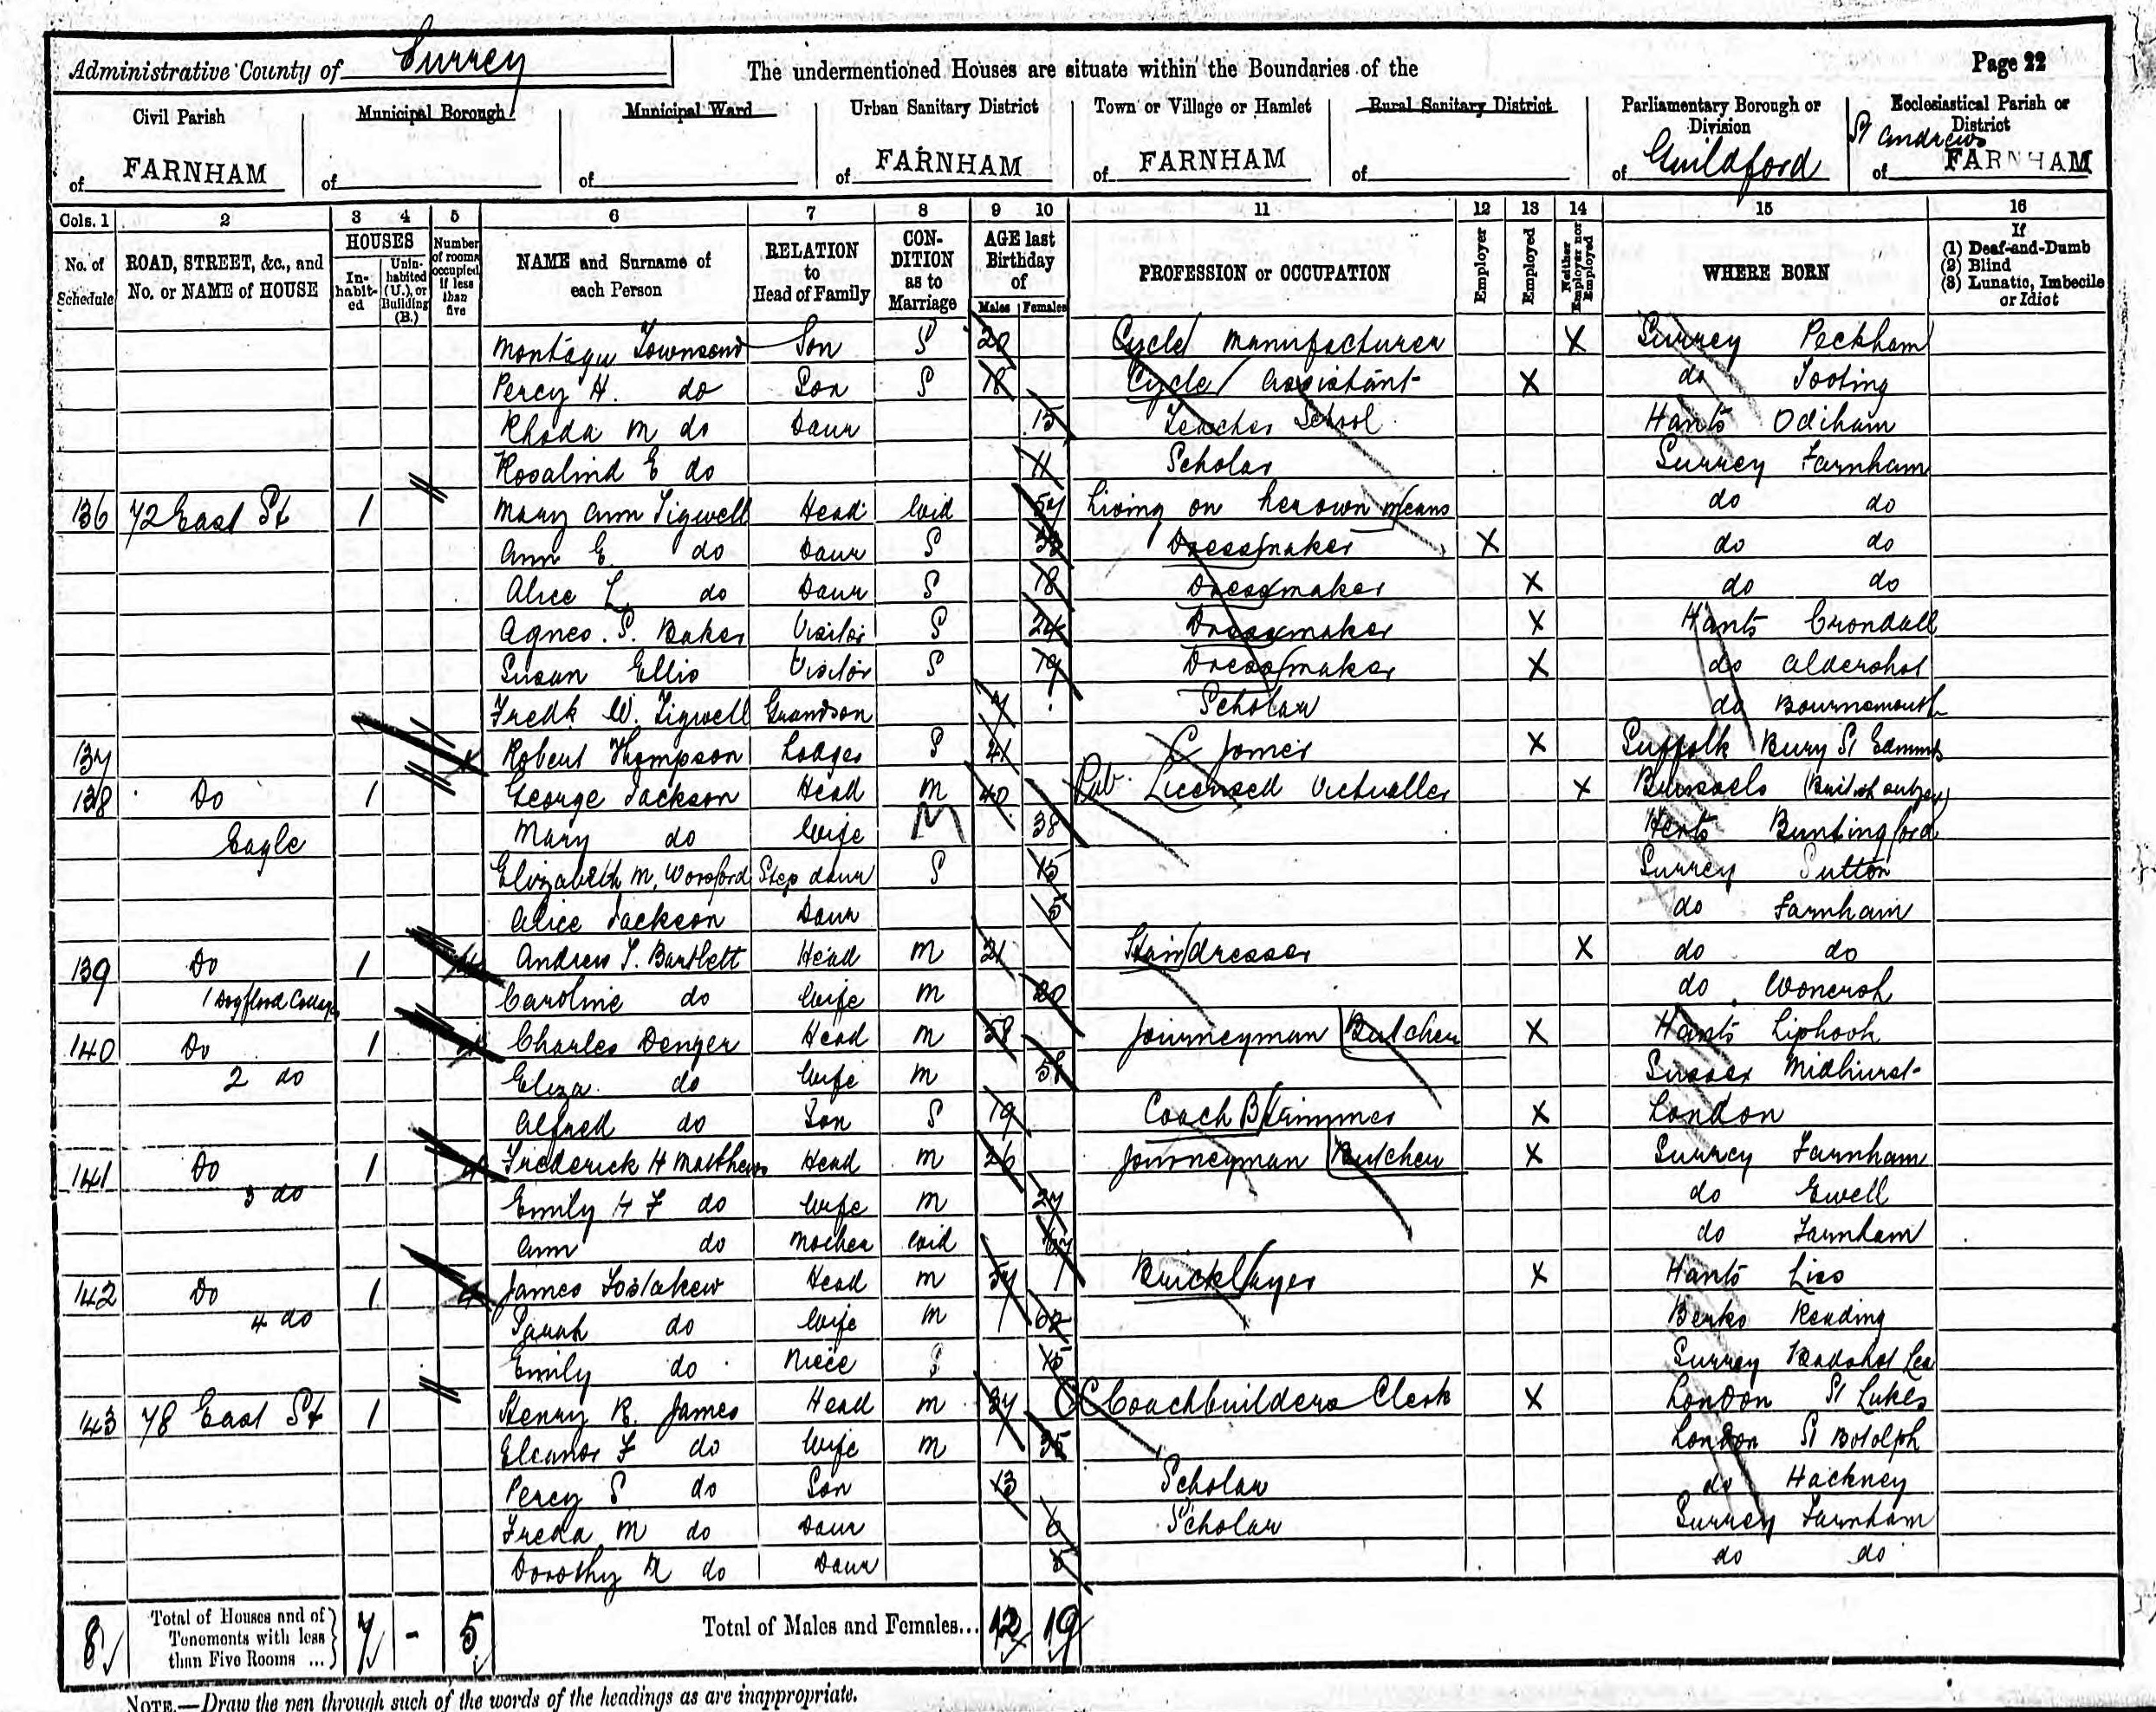 Administrative County of Surrey The undermentioned Houses are situate within the Boundaries of the Page 22
Civil Parish Municipal Borough Municipal Ward Urban Sanitary District Town or Village or Hamlet Rural Sanitary District Parliamentary Borough or Division Ecclesiastical Parish or District
of FARNHAM of of of FARNHAM of FARNHAM of of Guildford of St Andrews FARNHAM
Cols. 1 2 3 4 5 6 7 8 9 10 11 12 13 14 15 16
No. of Schedule ROAD, STREET, &c., and No. or NAME of HOUSE HOUSES In-habit-ed Unin-habited (U.), or Building (B.) Number of rooms occupied if less than five NAME and Surname of each Person RELATION to Head of Family CON-DITION as to Marriage AGE last Birthday of Males Females PROFESSION or OCCUPATION Employer Employed Neither Employer nor Employed WHERE BORN If (1) Deaf-and-Dumb (2) Blind (3) Lunatic, Imbecile or Idiot
Montagu Townsend Son S 20 Cycle Manufacturer X Surrey Peckham
Percy H. do Son S 18 Cycle Assistant X do Tooting
Rhoda M do Daur 15 School Hants Odiham
Rosalind E do 11 Scholar Surrey Farnham
136 72 East St 1 Mary Ann Tigwell Head Wid 57 Living on her own means do do
Ann E do Daur S Dressmaker X do do
Alice L do Daur S 18 Dressmaker X do do
Agnes. S. Baker Visitor S 24 Dressmaker X Hants Crondall
Susan Ellis Visitor S 19 Dressmaker X do Aldershot
Fredk W. Tigwell Grandson 7 Scholar do Bournemouth
137 1 Robert Thompson Lodger S 21 Joiner X Suffolk Bury St Edmunds
138 Do 1 George Jackson Head M 40 Pub. Licensed Victualler X Brussels (British subject)
Eagle Mary do Wife M 38 Herts Buntingford
Elizabeth M. Worsford Step daur S 15 Surrey Sutton
Alice Jackson Daur 5 do Farnham
139 Do 1 4 Andrew T. Bartlett Head M 21 Hairdresser X do do
1 Dogflood Cottages Caroline do Wife M 20 do Wonersh
140 Do 1 4 Charles Denyer Head M 58 Journeyman Butcher X Hants Liphook
2 do Eliza do Wife M 58 Sussex Midhurst
Alfred do Son S 19 Coach B Trimmer X London
141 Do 1 4 Frederick H Matthews Head M 26 Journeyman Butcher X Surrey Farnham
3 do Emily H F do Wife M 27 do Ewell
Ann do Mother Wid 67 do Farnham
142 Do 1 4 James Head M 57 Bricklayer X Hants Liss
4 do Sarah do Wife M 62 Berks Reading
Emily do Niece S 15 Surrey Badshot Lea
143 78 East St 1 Henry R. James Head M 37 Coachbuilders Clerk X London St Lukes
Eleanor F do Wife M 35 London St Botolph
Percy S do Son 13 Scholar do Hackney
Freda M do Daur 6 Scholar Surrey Farnham
Dorothy N do Daur 5 do do
8 Total of Houses and of Tenements with less than Five Rooms ... 7 - 5 Total of Males and Females... 12 19
NOTE.—Draw the pen through such of the words of the headings as are inappropriate.